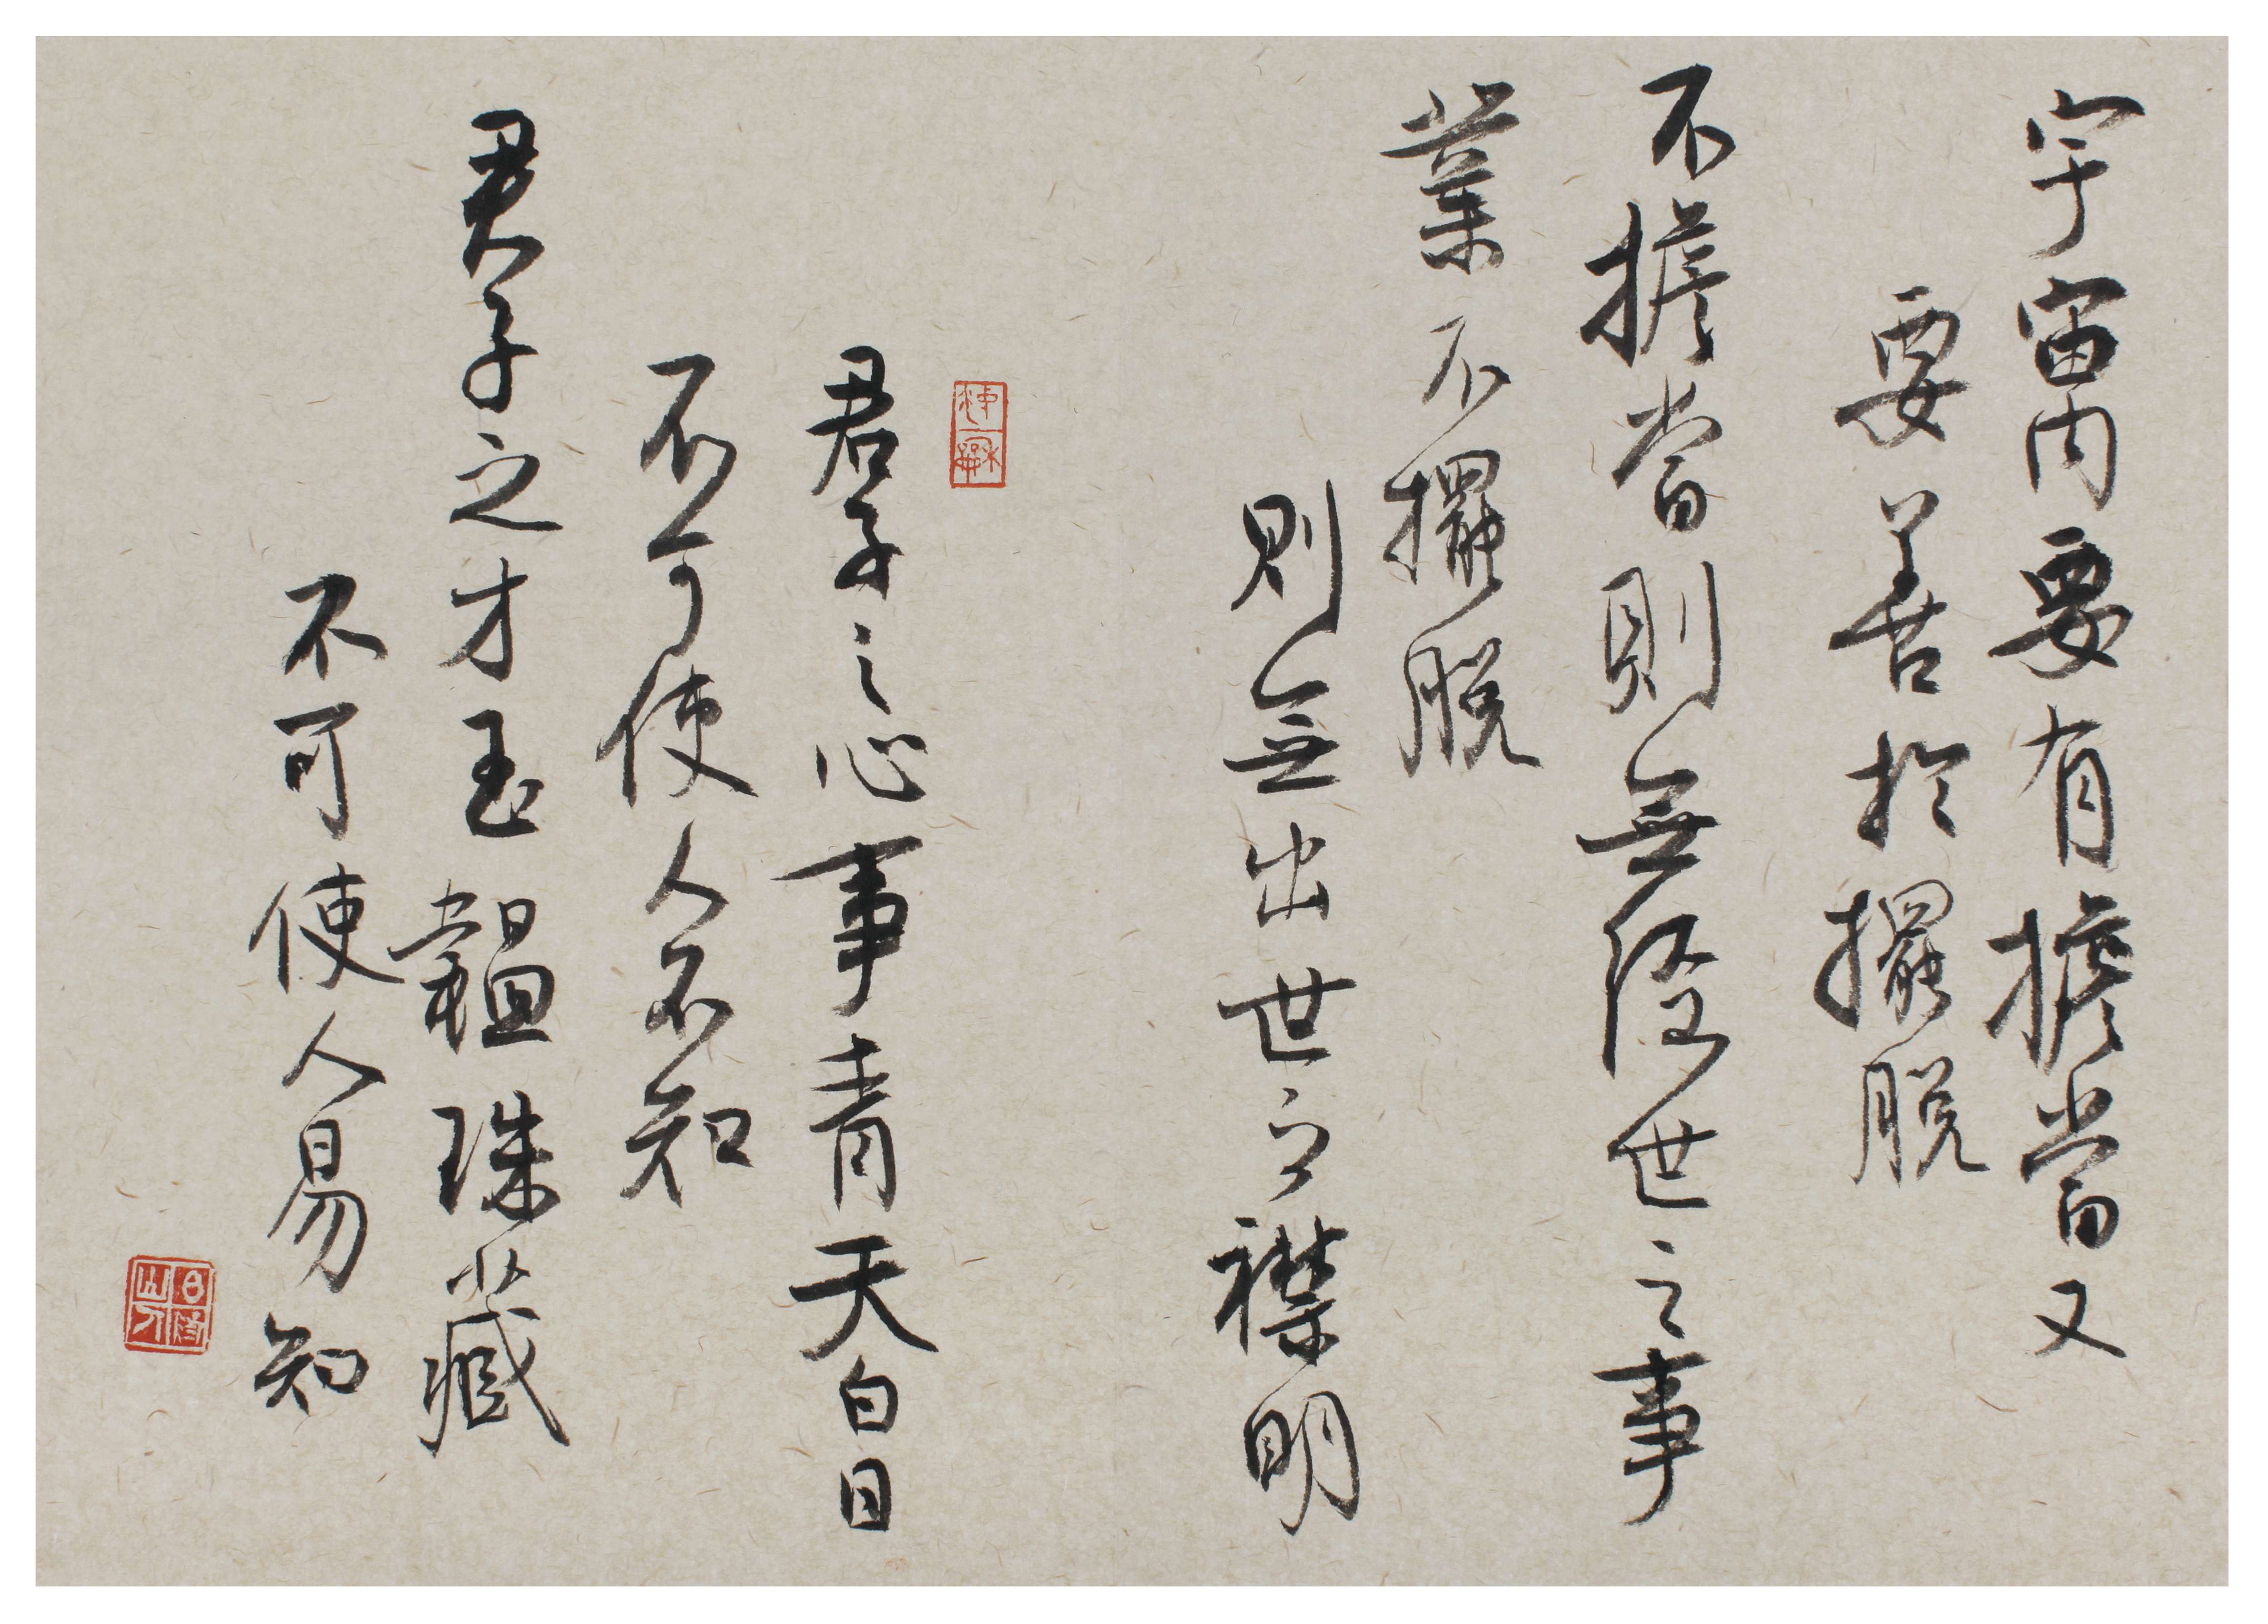 宇宙內要有擔當又
要善於擺脫
不擔當則無經世之事
業不擺脫
則無出世之襟明
君子之心事青天白日
不可使人不知
君子之才玉韞珠藏
不可使人易知